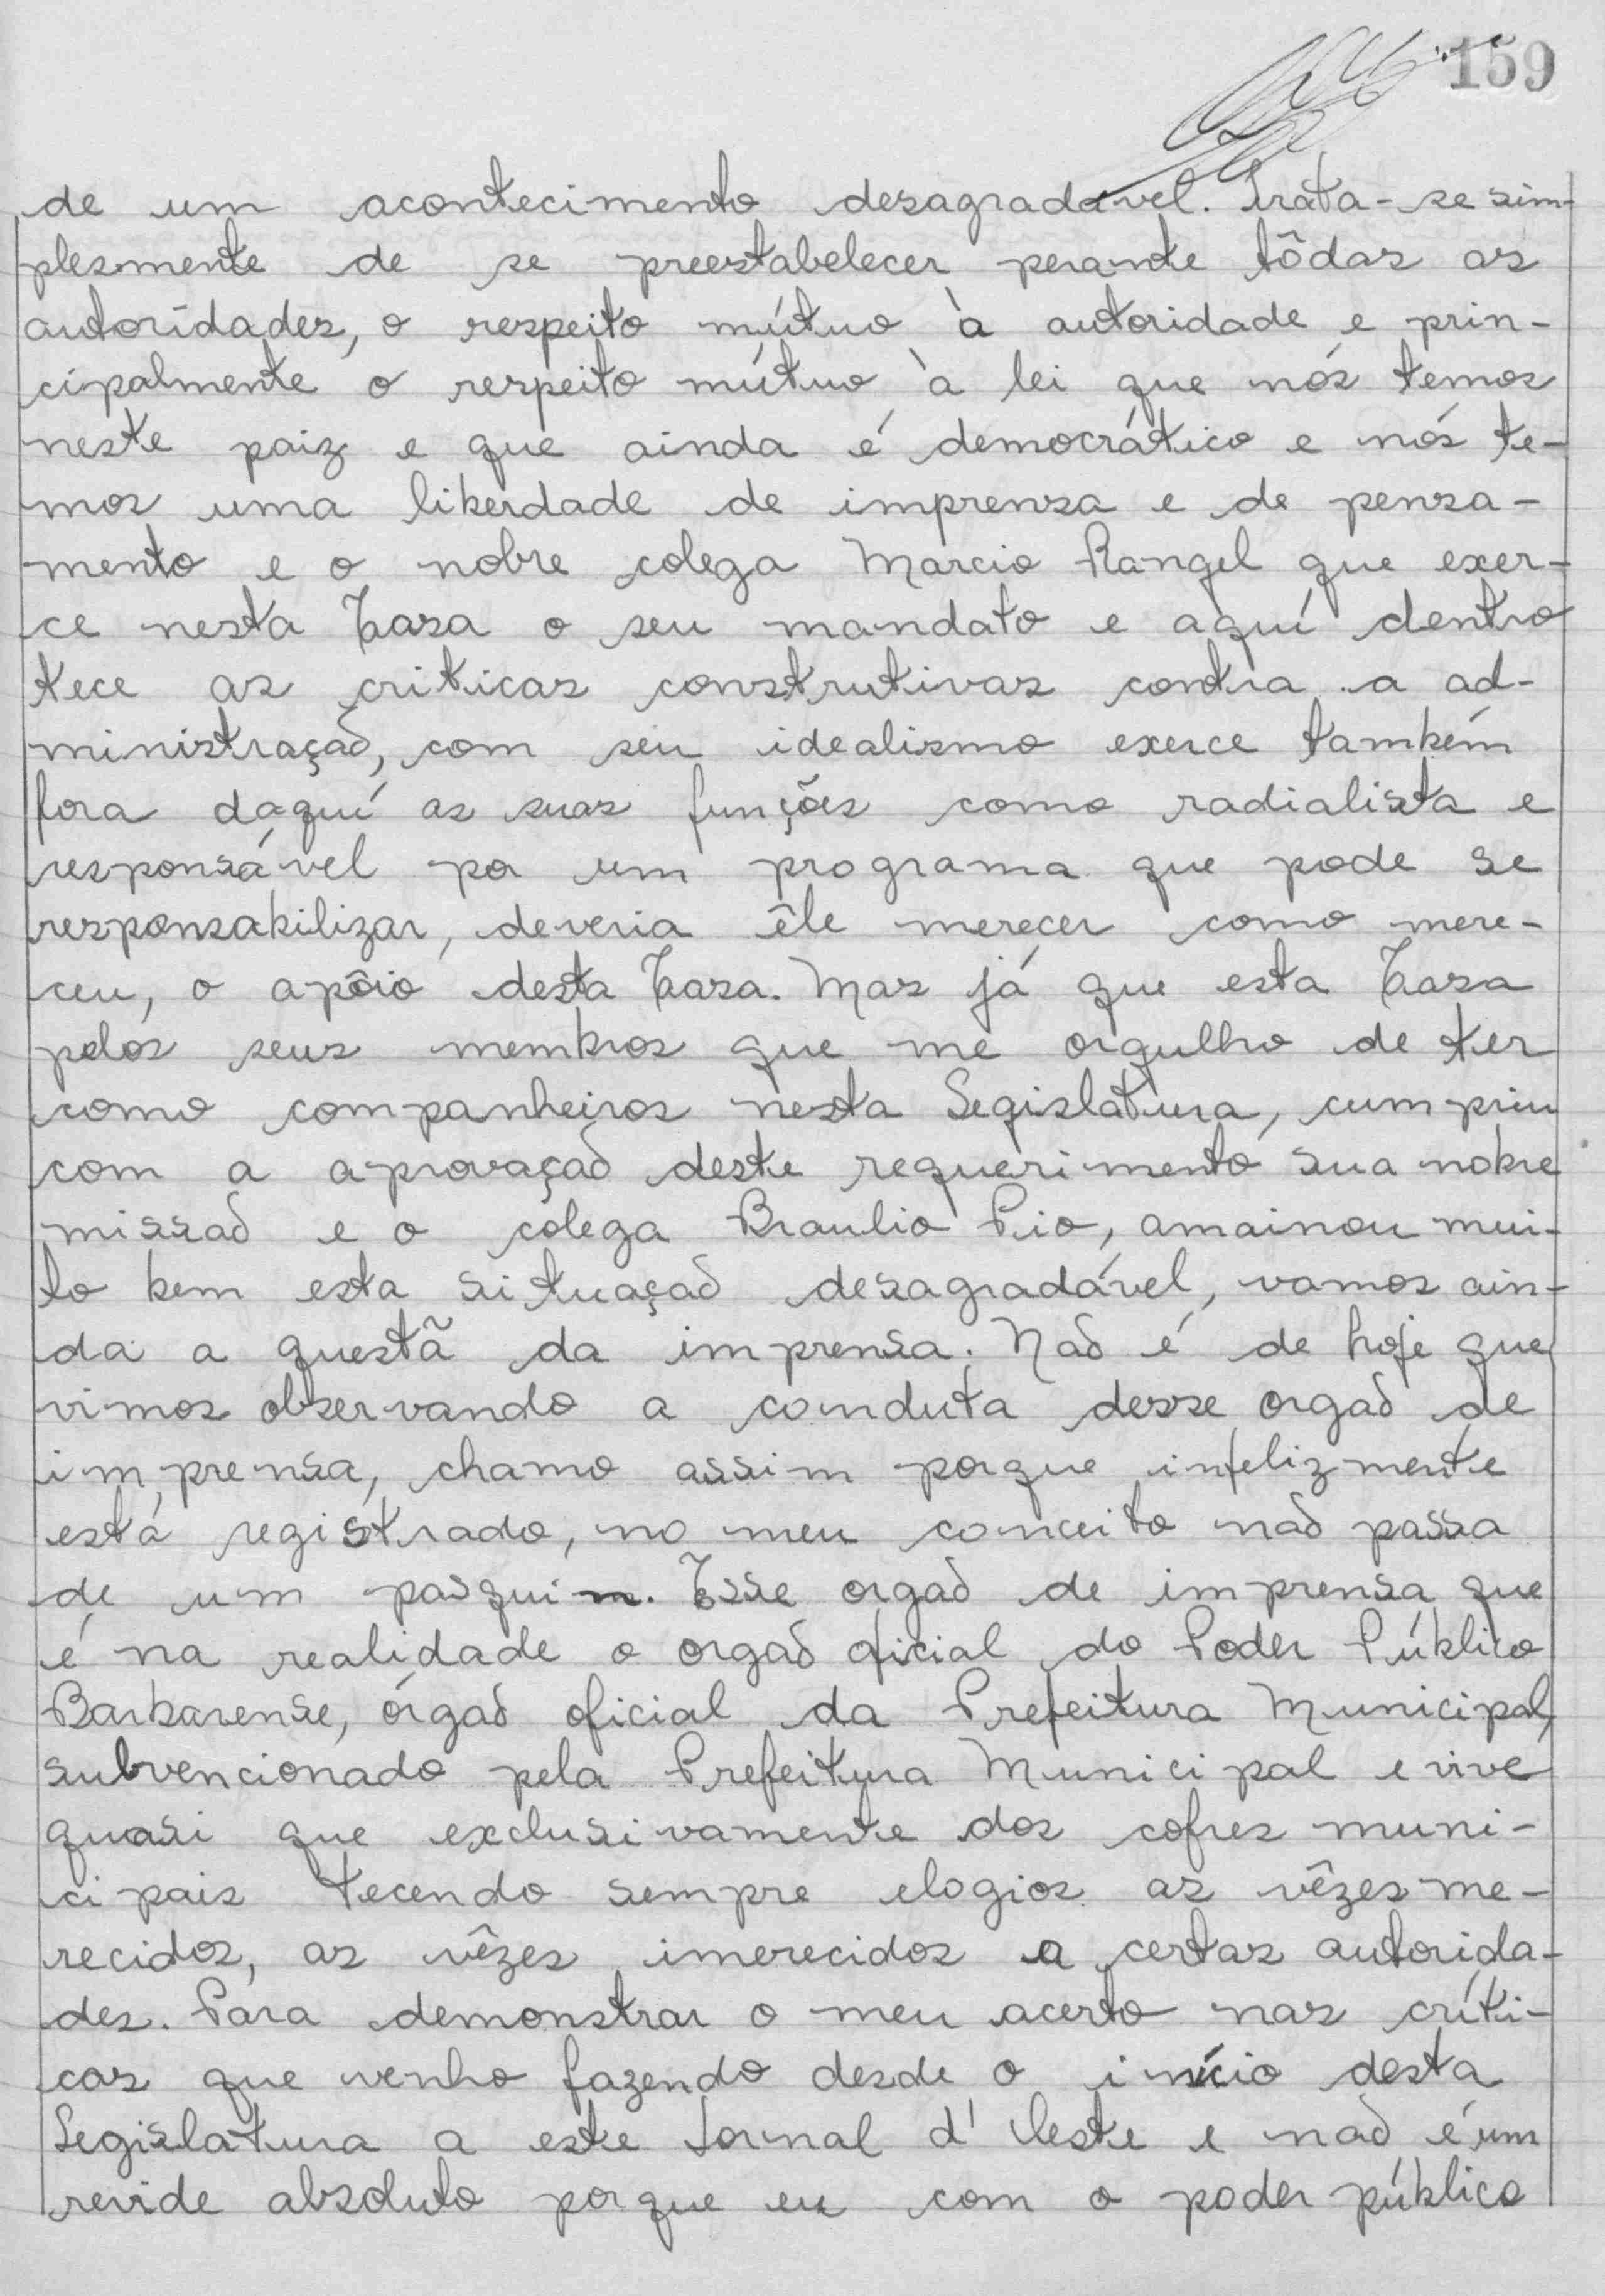 159
de um acontecimento desagradável. Trata-se sim-
plesmente de se preestabelecer perante tôdas as
autoridades, o respeito mútuo à autoridade e prin-
cipalmente o respeito mútuo à lei que nós temos
neste paiz e que ainda é democrático e nós te-
mos uma liberdade de imprensa e de pensa-
mento e o nobre colega Marcio Rangel que exer-
ce nesta Casa o seu mandato e aquí dentro
tece as criticas construtivas contra a ad-
ministração, com seu idealismo exerce também
fora daquí as suas funções como radialista e
responsável por um programa que pode se
responsabilizar, deveria êle merecer como mere-
ceu, o apôio desta Casa. Mas já que esta Casa
pelos seus membros que me orgulho de ter
como companheiros nesta Legislatura, cumpriu
com a aprovação deste requerimento sua nobre
missão e o colega Braulio Pio, amainou mui-
to bem esta situação desagradável, vamos ain-
da a questã da imprensa. Não é de hoje que
vimos observando a conduta desse orgão de
imprensa, chamo assim porque infelizmente
está registrado, no meu conceito não passa
de um pasquim. Esse orgão de imprensa que
é na realidade o orgão oficial do Poder Público
Barbarense, órgão oficial da Prefeitura Municipal,
subvencionado pela Prefeitura Municipal e vive
quasi que exclusivamente dos cofres muni-
cipais tecendo sempre elogios as vêzes me-
recidos, as vêzes imerecidos a certas autorida-
des. Para demonstrar o meu acerto nas críti-
cas que venho fazendo desde o início desta
Legislatura a este Jornal d'Oeste e não é um
revide absoluto porque eu com o poder público